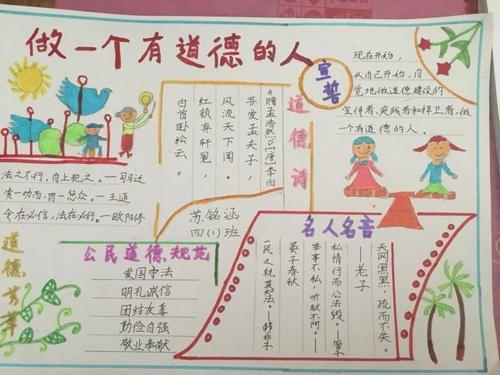 做一个有道德的人
宣誓
现在开始，
从自己开始，自
觉地做道德建设的
宣传者，实践者和捍卫者，做
一个有道德的人。
道德诗
《赠孟浩然》[唐]李白
吾爱孟夫子，
风流天下闻。
红颜弃轩冕，
白首卧松云。
苏铭涵
四(1)班
法之不行，自上犯之。—司马迁
众。—王通
令在必信，法在必行。—欧阳修
道德芳草
公民道德规范
爱国守法
明礼诚信
团结友善
勤俭自强
敬业奉献
名人名言
天网恢恢，疏而不失。
—老子
私情行而公法毁。—管子
举事不私，听狱不阿。—
晏子春秋
一民之轨莫如法。—韩非子